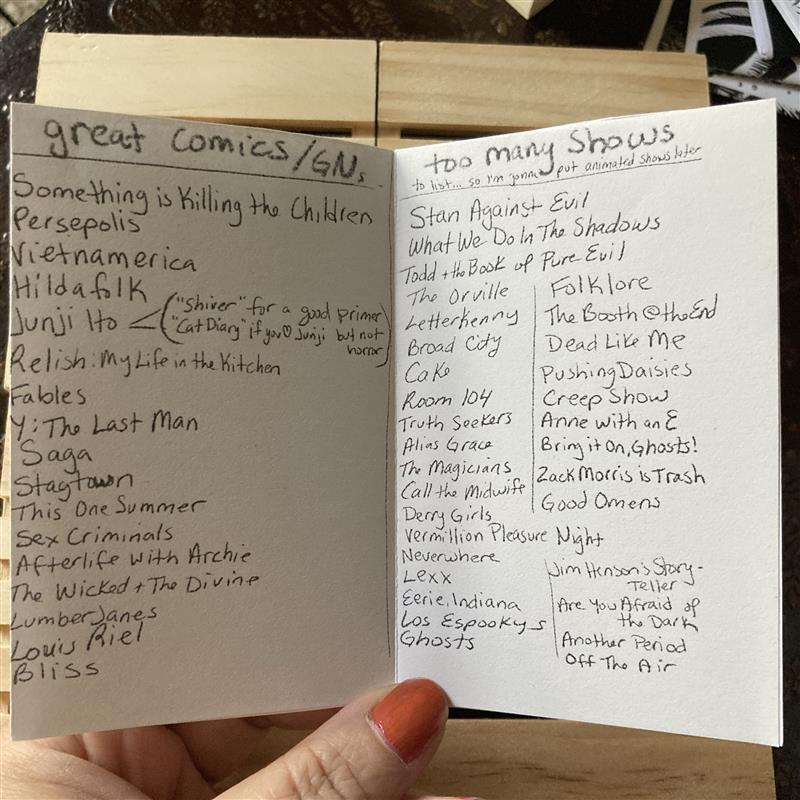 great comics/GNs
Something is Killing the Children
Persepolis
Vietnamerica
Hildafolk
Junji Ito < ("Shiver" for a good primer
"Cat Diary" if you ♡ Junji but not
horror)
Relish: My Life in the Kitchen
Fables
Y: The Last Man
Saga
Stagtown
This One Summer
Sex Criminals
Afterlife with Archie
The Wicked + The Divine
LumberJanes
Louis Riel
Bliss
too many shows
to list... so I'm gonna put animated shows later
Stan Against Evil
What We Do In The Shadows
Todd + the Book of Pure Evil
The Orville
Letterkenny
Broad City
Cake
Room 104
Truth Seekers
Alias Grace
The Magicians
Call the Midwife
Derry Girls
Folklore
The Booth @ the End
Dead Like Me
Pushing Daisies
Creep Show
Anne with an E
Bring it On, Ghosts!
Zack Morris is Trash
Good Omens
Vermillion Pleasure Night
Neverwhere
Lexx
Eerie, Indiana
Los Espookys
Ghosts
Jim Henson's Story-
Teller
Are You Afraid of
the Dark
Another Period
Off The Air